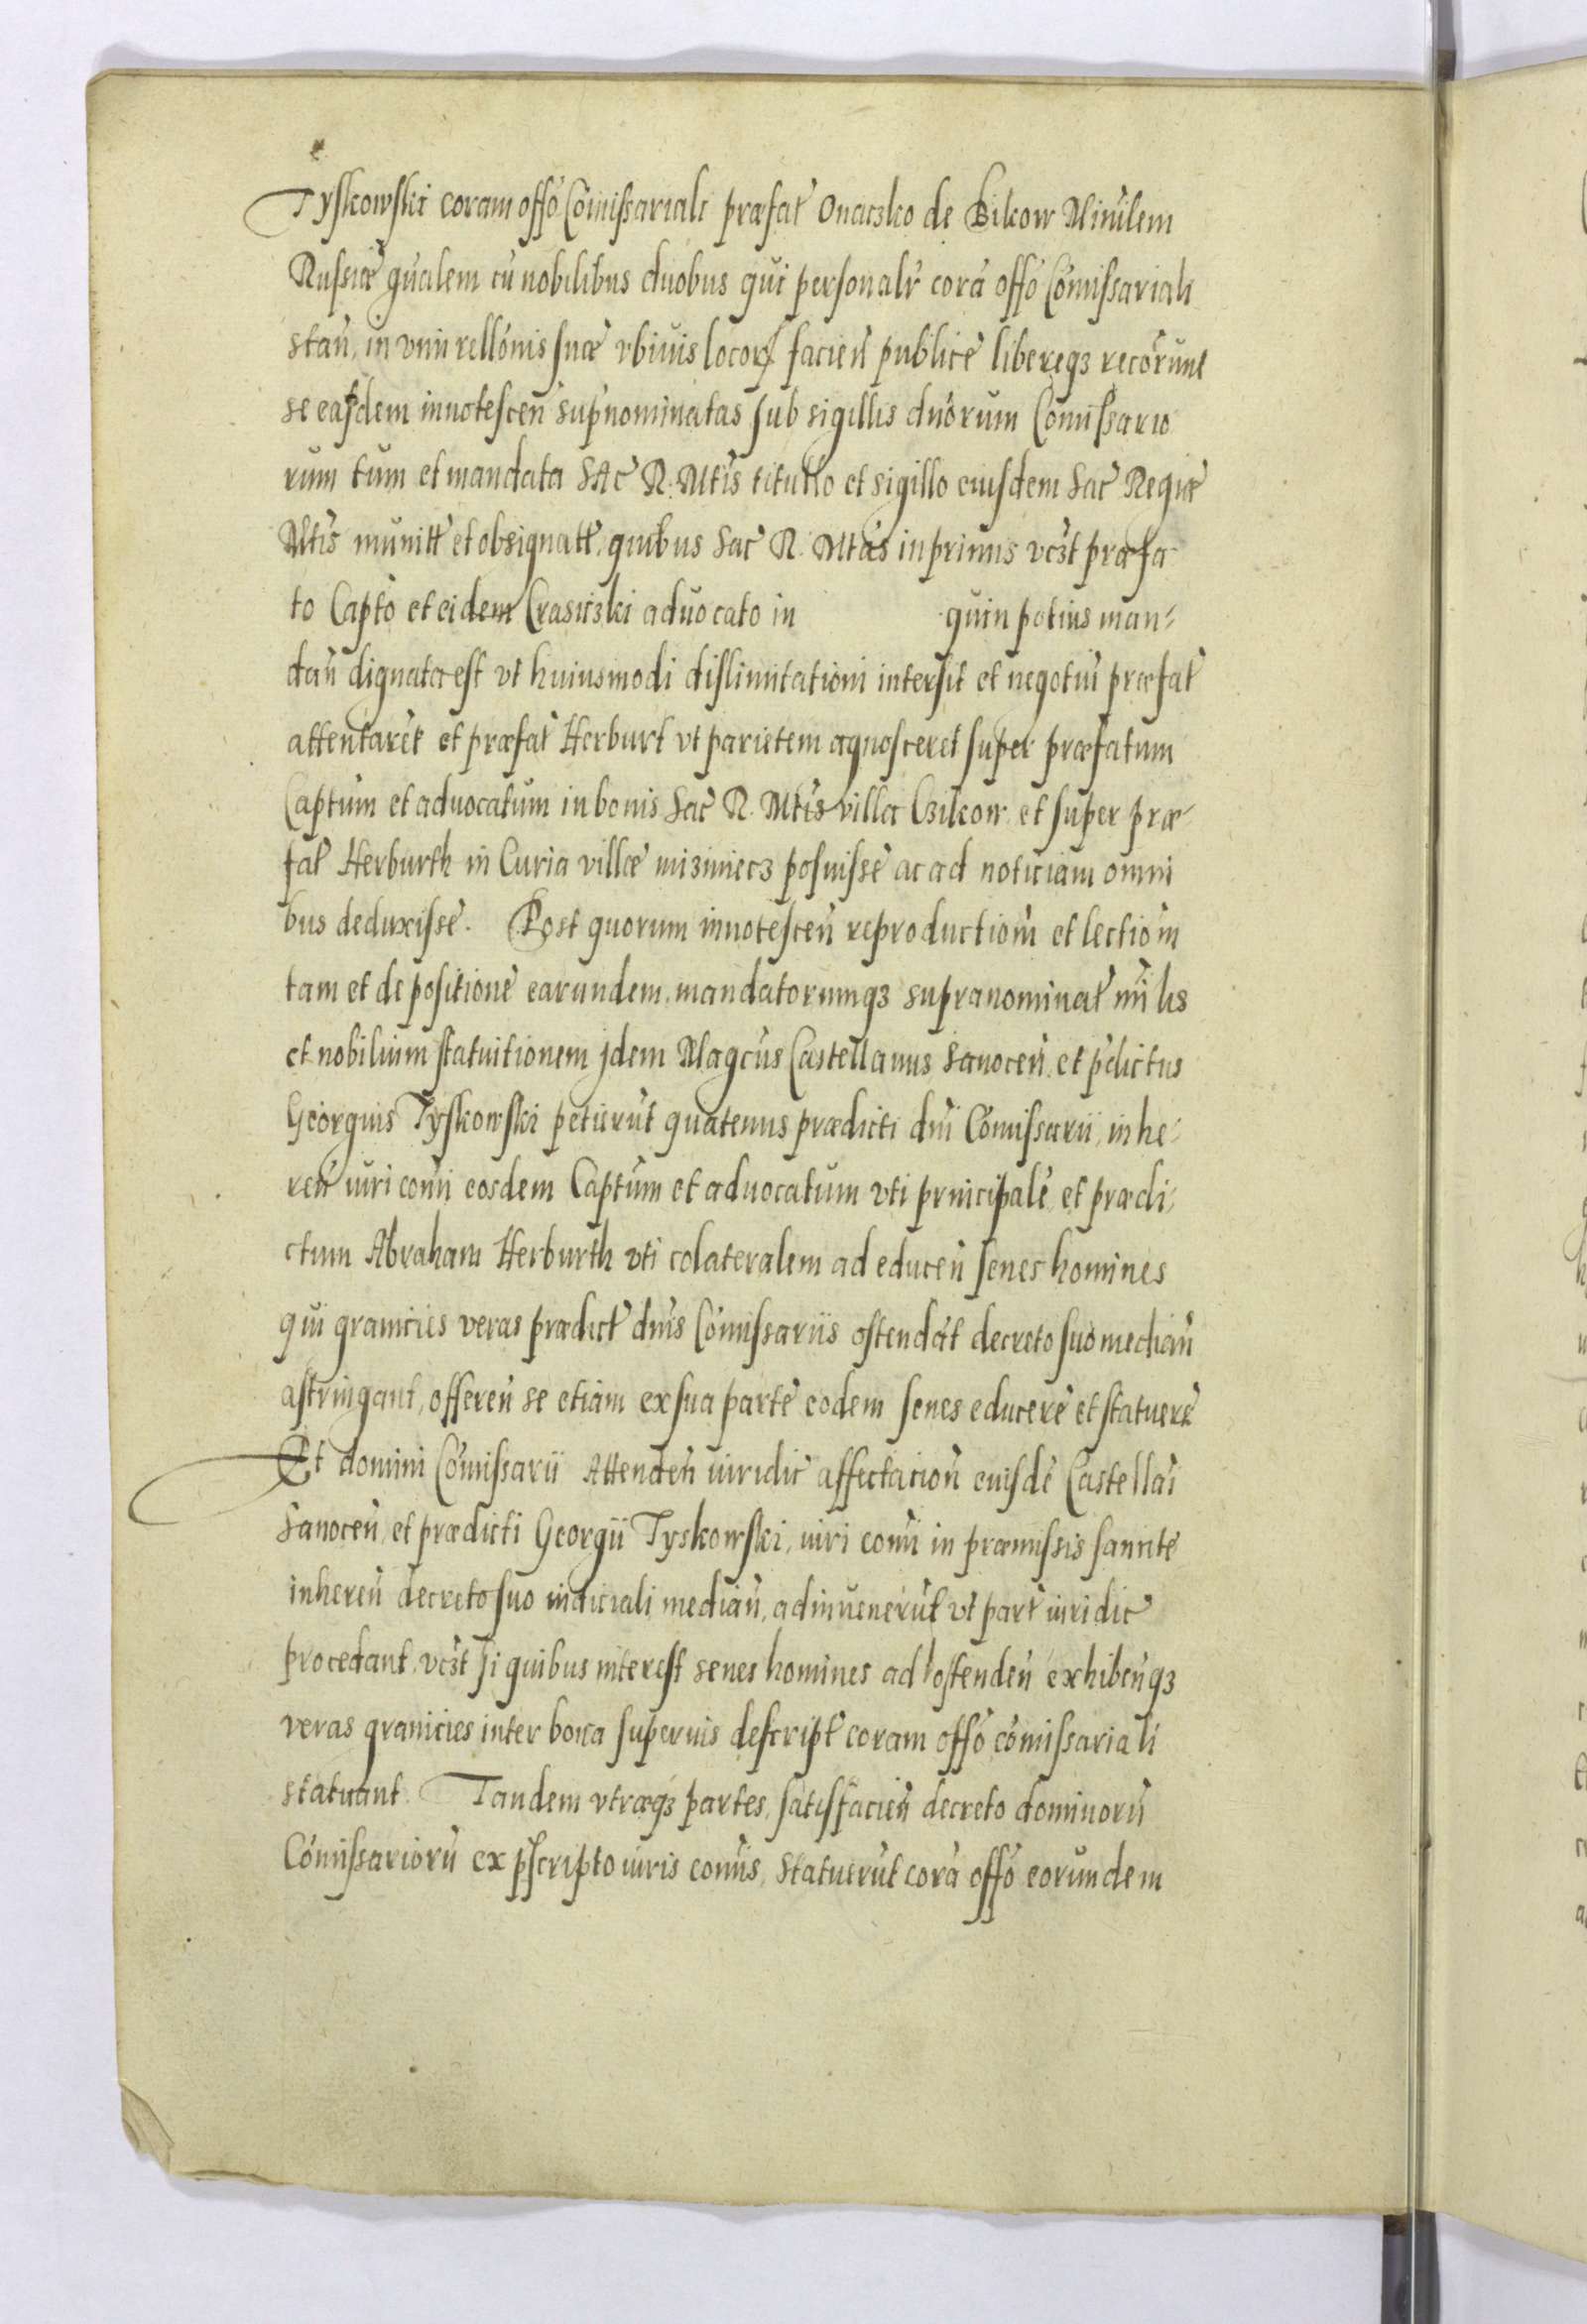 Tyskowski coram offō Cōmissariali præfat Onaczko de Bilcow Ministem
Russiæ qualem cū nobilibus duobus qui personalr corā offō Cōmissariali
stan̄, in vim rellōnis suæ vbiuis locorum facien̄ publice libereqз recōrunt
se easdem innotescen̄ sup̄nominatas sub sigillis dnōrum Comissario
rum tum et mandata SAc R. Mtis titulo et sigillo eiusdem Sac Regiæ
Mtis munitt et obsignatt, quibus Sac R. Mtas inprimis vczt præfa
to Capto et eidem Crasiczki aduocato in quin potius man-
dan̄ dignata est vt huiusmodi dislimitationi intersit et negotiū præfat
attentaret et præfat Herburt vt parietem agnosceret super præfatum
Captum et aduocatum in bonis Sac R. Mtis villa Czilcow et super præ-
fat Herburth in Curia villæ miziniecz posuisse ac ad noticiam omni
bus deduxisse. Post quorum innotescen̄ reproductiom̄ et lectiom̄
tam et de positione earundem mandatorumqз supranominat mīlis
et nobilium statuitionem jdem Magcus Castellanus Sanocen̄ et p̄dictus
Georgius Tyskowski petierūt quatenus prædicti dni Comissarii, in he-
ren̄ iuri com̄i eosdem Captum et aduocatum vti principale et prædi-
ctum Abraham Herburth vti colateralem ad educen̄ senes homines
qui granicies veras prædict dnis Cōmissariis ostendāt decreto suo median̄
astringant, offeren̄ se etiam ex sua parte eodem senes educere et statuere
Et domini Cōmissarii Attenden̄ iuridic affectacion̄ eiusdē Castellai
Sanocen̄ et prædicti Georgii Tyskowski, iuri com̄i in præmissis sannte
inheren̄ decreto suo iudiciali median̄, adinuenerūt vt part iuridic
procedant, vczt si quibus interest senes homines ad ostenden̄ exhibenqз
veras granicies inter bona superius descript coram offō cōmissariali
statuant. Tandem vtræqз partes, satisfacien̄ decreto dominorū
Cōmissariorū ex p̄scripto iuris com̄is, Statuerūt corā offō eorundem